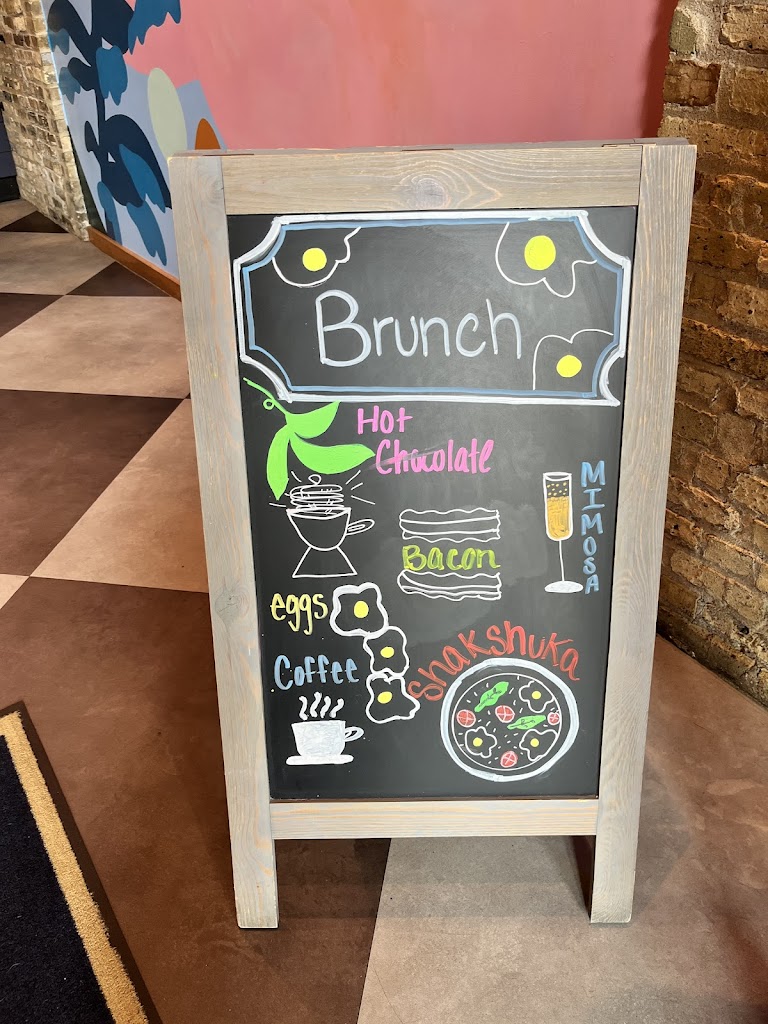 Brunch
Hot
Chocolate
MIMOSA
Bacon
eggs
Coffee
Shakshuka